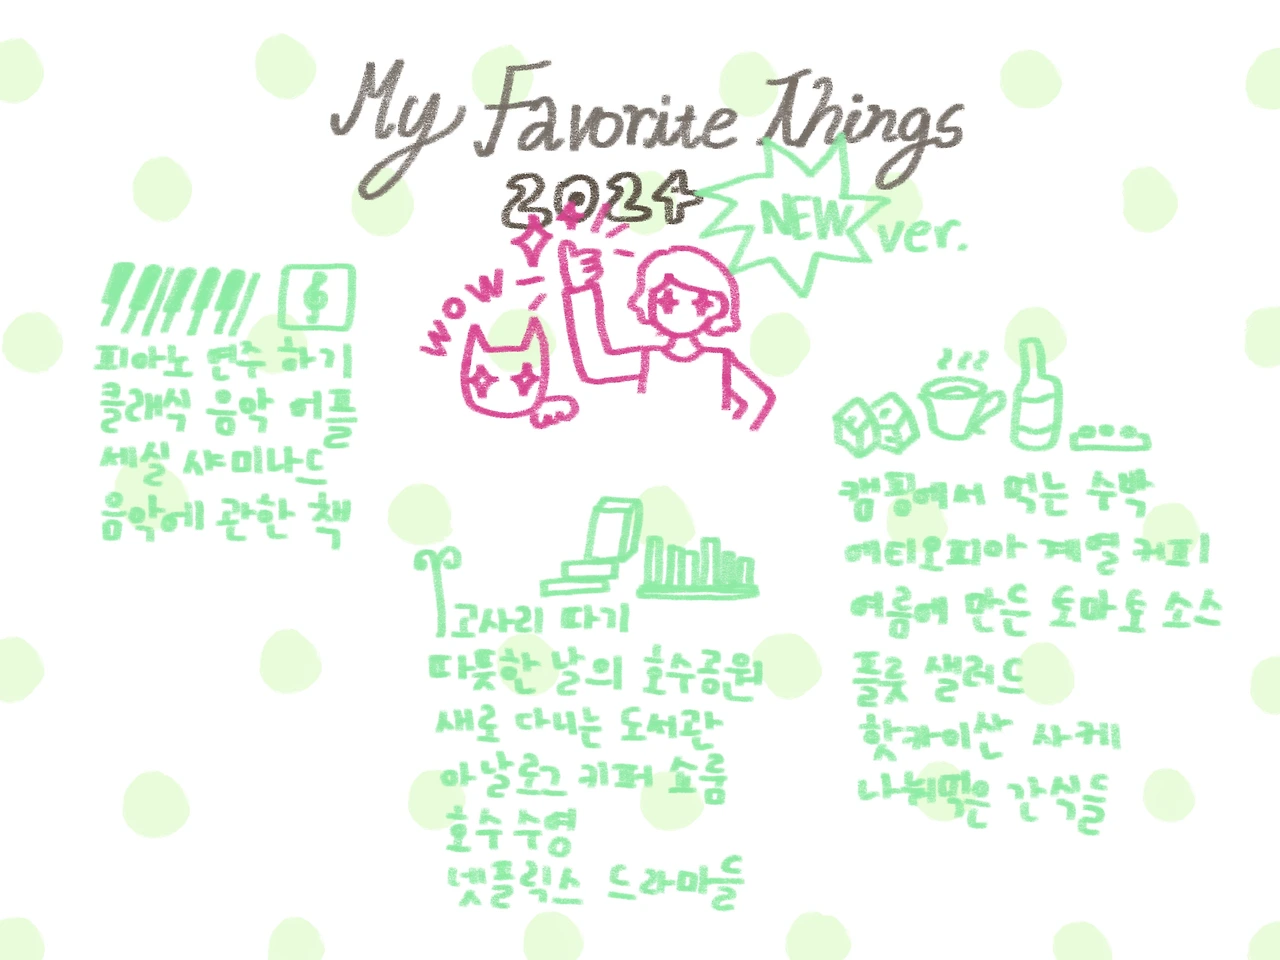 My Favorite Things
2024
NEW ver.
WOW
피아노 연주 하기
클래식 음악 어플
세실 샤미나드
음악에 관한 책
고사리 따기
따뜻한 날의 호수공원
새로 다니는 도서관
아날로그 키퍼 쇼룸
호수 수영
넷플릭스 드라마들
캠핑에서 먹는 수박
에티오피아 계열 커피
여름에 만든 토마토 소스
플룻 샐러드
핫카이산 사케
나눠먹은 간식들